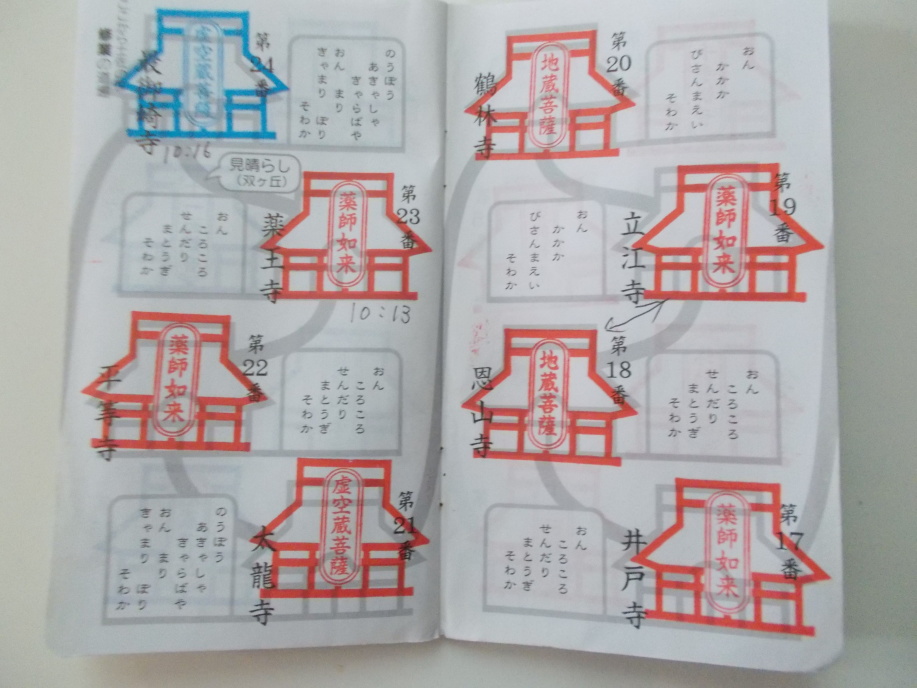 第20番
鶴林寺
地蔵菩薩
おん
かかか
びさんまえい
そわか
第19番
立江寺
薬師如来
おん
かかか
びさんまえい
そわか
第18番
恩山寺
地蔵菩薩
おん
ころころ
せんだり
まとうぎ
そわか
第17番
井戸寺
薬師如来
おん
ころころ
せんだり
まとうぎ
そわか
修業の道場
第24番
最御崎寺
虚空蔵菩薩
のうぼう
あきゃしゃ
きゃらばや
おん まり
きゃまり ぼり
そわか
10:16
見晴らし
(双ヶ丘)
第23番
薬王寺
薬師如来
おん
ころころ
せんだり
まとうぎ
そわか
10:13
第22番
平等寺
薬師如来
おん
ころころ
せんだり
まとうぎ
そわか
第21番
太龍寺
虚空蔵菩薩
のうぼう
あきゃしゃ
きゃらばや
おん まり
きゃまり ぼり
そわか